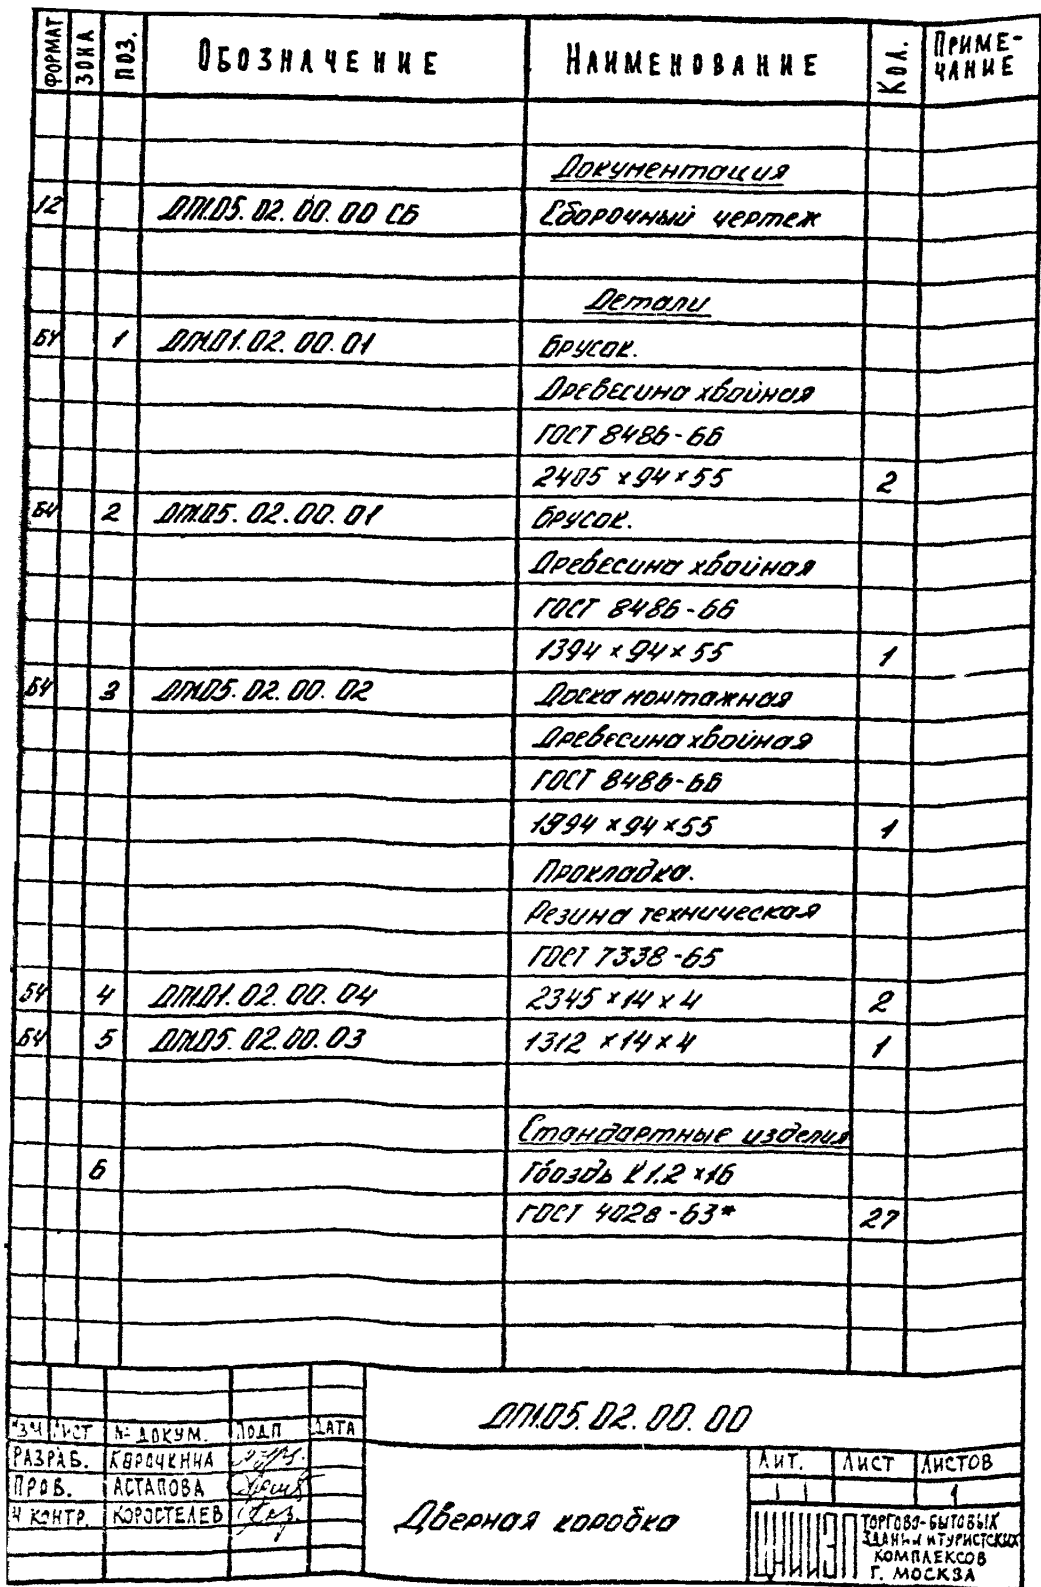 ФОРМАТ ЗОНА ПОЗ. ОБОЗНАЧЕНИЕ НАИМЕНОВАНИЕ КОЛ. ПРИМЕ-
ЧАНИЕ
Документация
12 ДМ.05.02.00.00 СБ Сборочный чертеж
Детали
БЧ 1 ДМ.01.02.00.01 Брусок.
Древесина хвойная
ГОСТ 8486-66
2405 x 94 x 55 2
БЧ 2 ДМ.05.02.00.01 Брусок.
Древесина хвойная
ГОСТ 8486-66
1394 x 94 x 55 1
БЧ 3 ДМ.05.02.00.02 Доска монтажная
Древесина хвойная
ГОСТ 8486-66
x 94 x 55 1
Прокладка.
Резина техническая
ГОСТ 7338-65
БЧ 4 ДМ.01.02.00.04 2345 x 14 x 4 2
БЧ 5 ДМ.05.02.00.03 1312 x 14 x 4 1
Стандартные изделия
6 Гвоздь К 1.2 x 16
ГОСТ 4028-63* 27
ДМ.05.02.00.00
ИЗМ ЛИСТ № ДОКУМ. ПОДП ДАТА
РАЗРАБ.
ПРОВ. АСТАПОВА
Н КОНТР. КОРОСТЕЛЕВ
Дверная коробка
ЛИТ. ЛИСТ ЛИСТОВ
1
ЦНИИЭП
ТОРГОВО-БЫТОВЫХ
ЗДАНИЙ И ТУРИСТСКИХ
КОМПЛЕКСОВ
Г. МОСКВА